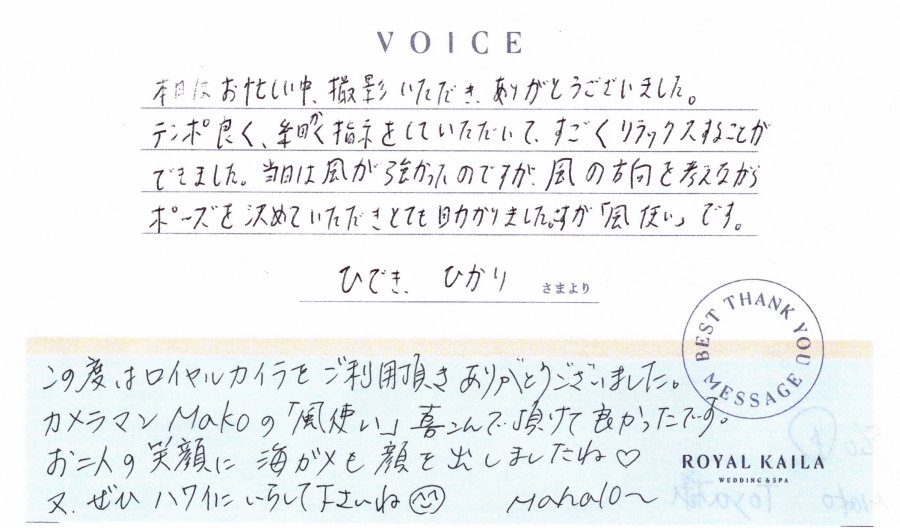 VOICE
本日はお忙しい中、撮影いただき、ありがとうございました。
テンポ良く、細かく指示をしていただいて、すごくリラックスすることが
できました。当日は風が強かったのですが、風の方向を考えながら
ポーズを決めていただきとても助かりました。さすが「風使い」です。
ひでき、ひかり さまより
BEST THANK YOU MESSAGE
この度はロイヤルカイラをご利用頂きありがとうございました。
カメラマンMakoの「風使い」喜こんで頂けて良かったです。
お二人の笑顔に海がメも顔を出しましたね♡
又、ぜひハワイにいらして下さいね
Mahalo〜
ROYAL KAILA
WEDDING & SPA